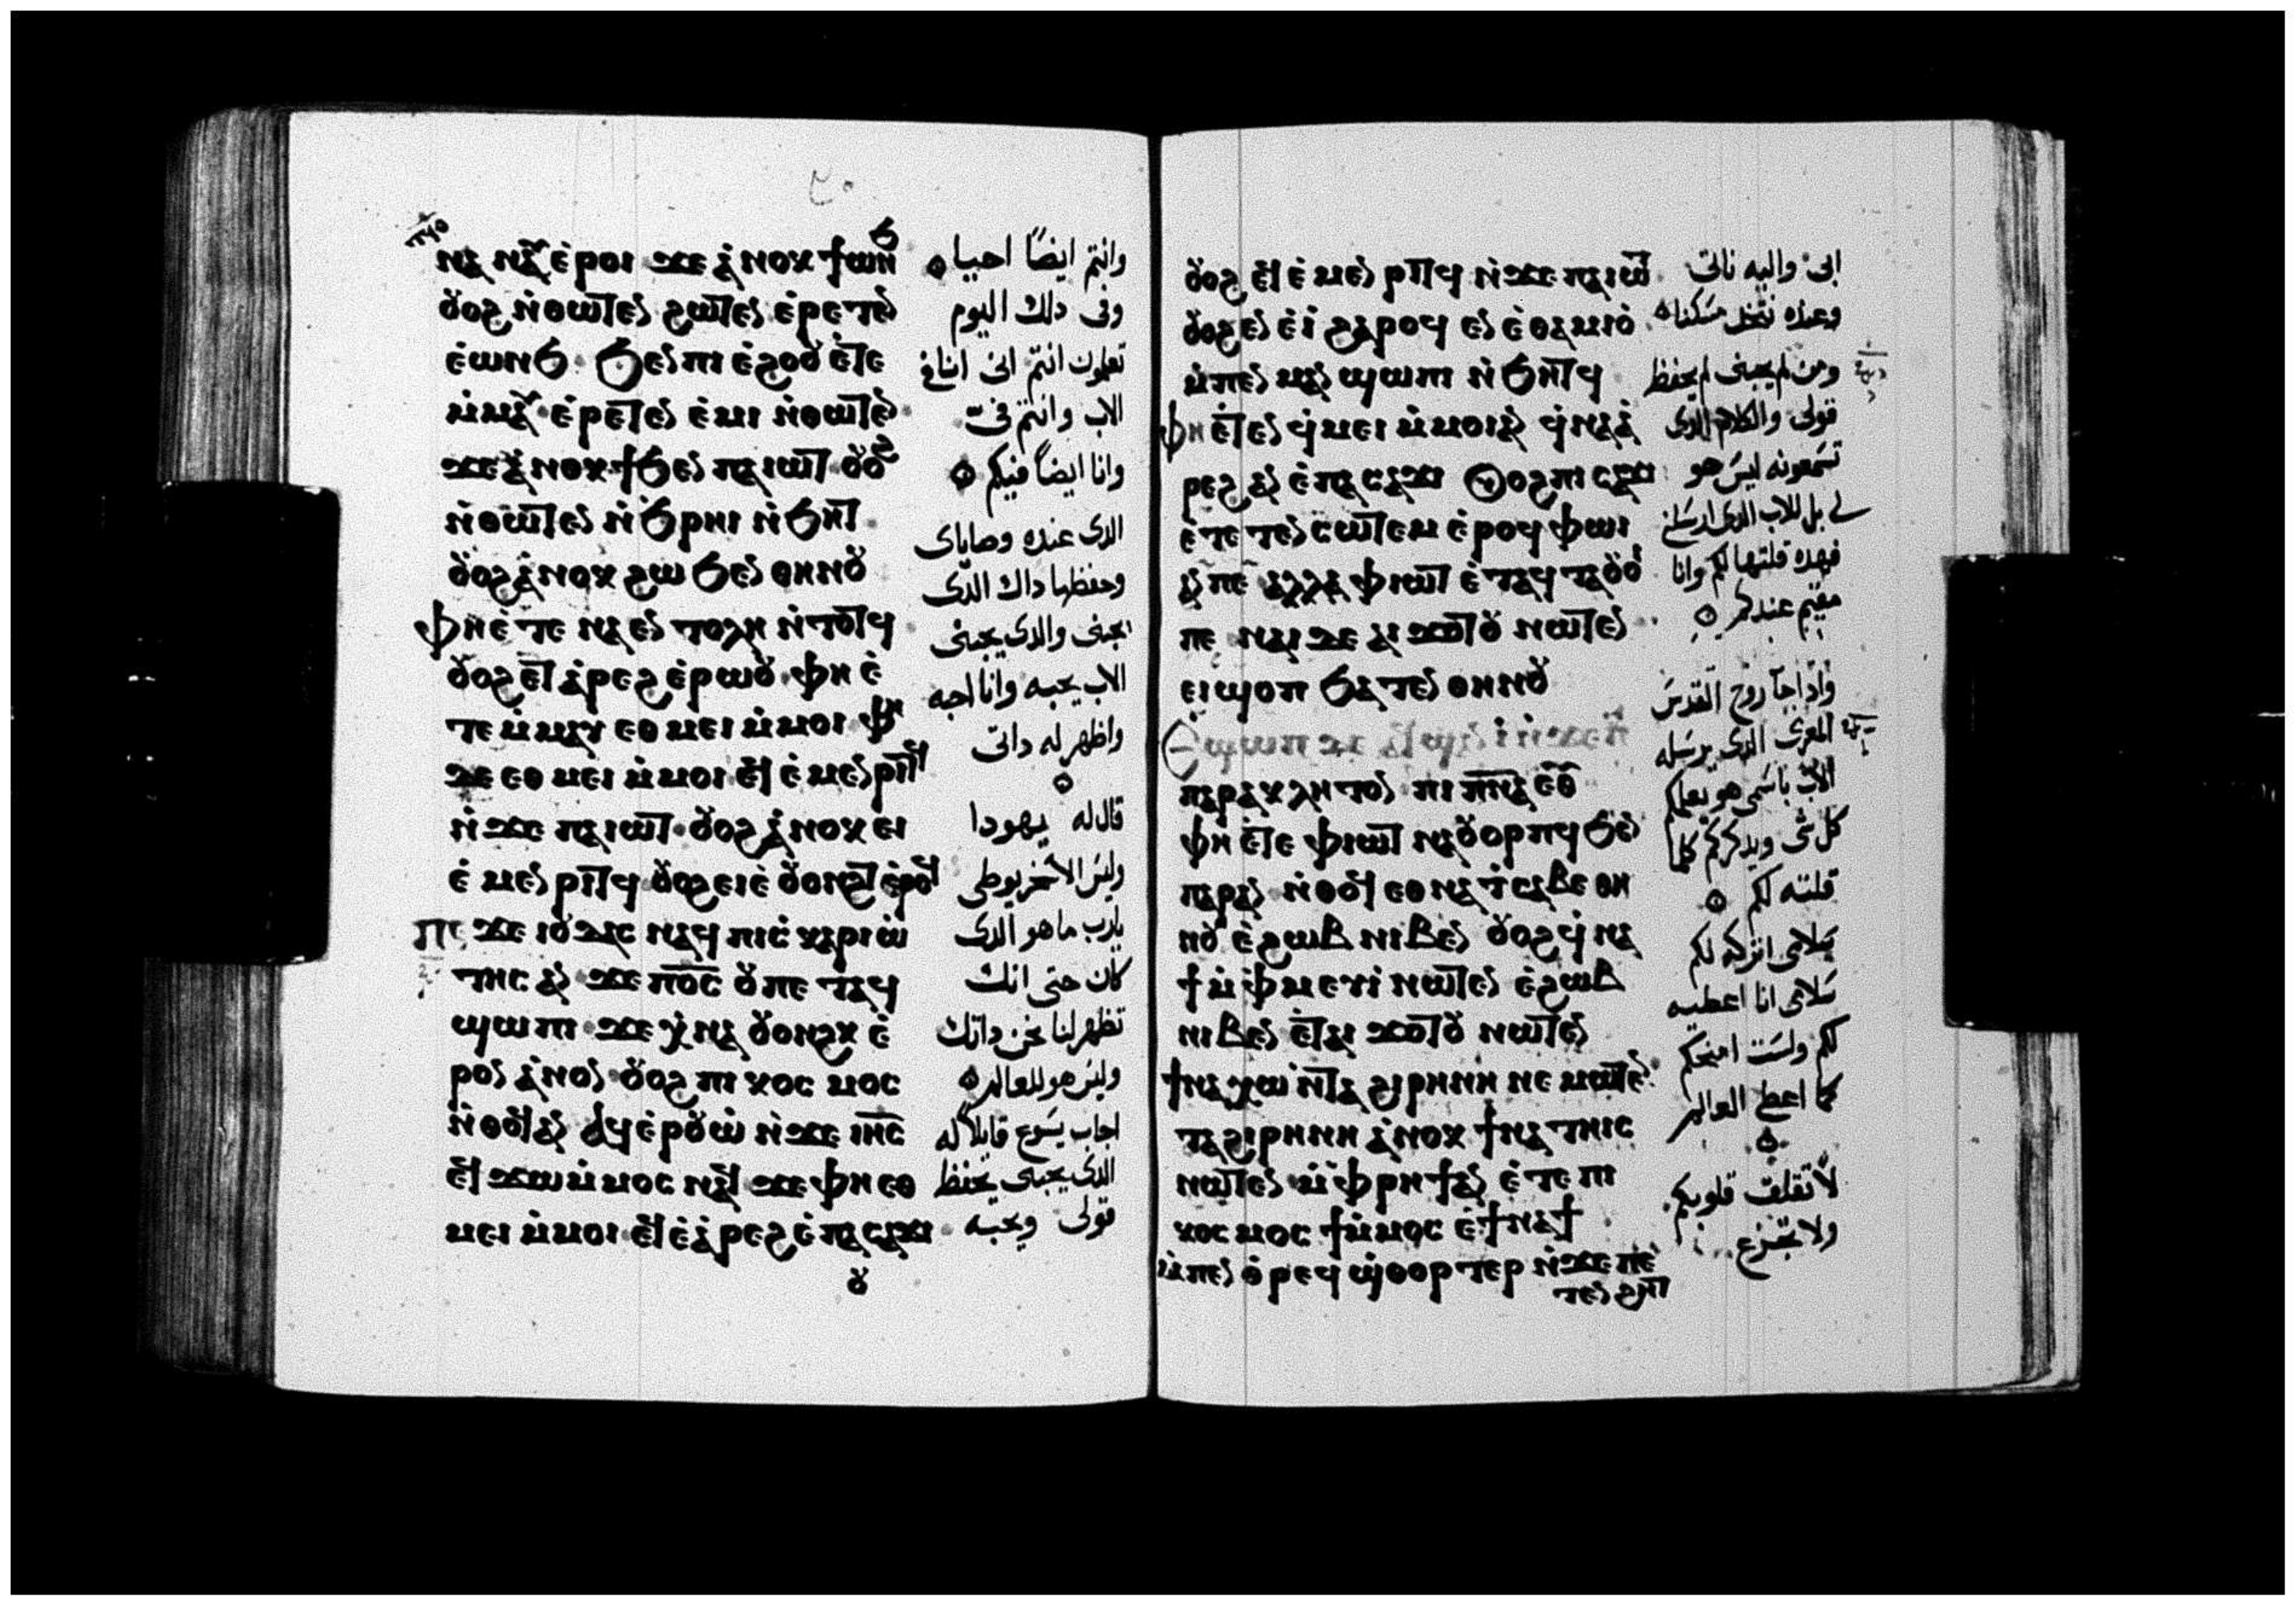 ⲛⲁ ⲛⲁⲩ ⲉ̇ⲣⲟⲓ ϫⲉ ⲁ̇ⲛⲟⲕ ϯⲱⲛϧ
ⲟⲩⲟϩ ⲛ̇ⲑⲱⲧⲉⲛ ϩⲱⲧⲉⲛ ⲉ̇ⲣⲉⲧⲉⲛ
ⲉ̇ⲱⲛϧ ϧⲉⲛ ⲡⲓ ⲉ̇ϩⲟⲟⲩ ⲉ̇ⲧⲉ
ⲙ̇ⲙⲁⲩ ⲉ̇ⲣⲉⲧⲉⲛ ⲉ̇ⲙⲓ ⲛ̇ⲑⲱⲧⲉⲛ
ϫⲉ ⲁ̇ⲛⲟⲕ ϯϧⲉⲛ ⲡⲁⲓⲱⲧ ⲟⲩⲟϩ
ⲛ̇ⲑⲱⲧⲉⲛ ⲛ̇ϧⲣⲏⲓ ⲛ̇ϧⲏⲧ
ⲟⲩⲟϩ ⲁ̇ⲛⲟⲕ ϩⲱ ϧⲉⲛ ⲑⲏⲛⲟⲩ
ⲫⲏ ⲉ̇ⲧⲉ ⲛⲁⲉⲛⲧⲟⲗⲏ ⲛ̇ⲧⲟⲧϥ
ⲟⲩⲟϩ ⲉⲧ ⲁ̇ⲣⲉϩ ⲉ̇ⲣⲱⲟⲩ ⲫⲏ ⲉ̇
ⲧⲉ ⲙ̇ⲙⲁⲩ ⲉⲑ ⲙⲉⲓ ⲙ̇ⲙⲟⲓ ⲫⲏ
ϫⲉ ⲉⲑ ⲙⲉⲓ ⲙ̇ⲙⲟⲓ ⲉϥⲉ̇ⲙⲉⲛⲣⲓⲧϥ
ⲛ̇ϫⲉ ⲡⲁⲓⲱⲧ ⲟⲩⲟϩ ⲁ̇ⲛⲟⲕ ⲉⲓ
ⲉ̇ⲙⲉⲛⲣⲓⲧϥ ⲟⲩⲟϩ ⲉⲓⲉ̇ ⲟⲩⲟⲛϩⲧ ⲉ̇ⲣⲟϥ
ⲡⲉϫⲉ ⲓⲟⲩⲇⲁⲥ ⲛⲁϥ ⲡⲓⲥ̇ⲕⲁⲣⲓⲱ̇
ⲧⲏⲥ ⲁⲛ ϫⲉ ⲡϭⲥ ⲟⲩ ⲡⲉ ⲧⲁϥ
ϣⲱⲡⲓ ϫⲉ ⲭ̇ⲛⲁ ⲟⲩⲟⲛϩⲕ ⲉ̇
ⲣⲟⲛ ⲁ̇ⲛⲟⲛ ⲟⲩⲟϩ ⲡⲓ ⲕⲟⲥⲙⲟⲥ
ⲛ̇ⲑⲟϥ ⲁⲛ ⲁϥⲉ̇ⲣⲟⲩⲱ̇ ⲛ̇ϫⲉ ⲓⲏⲥ
ⲉϥϫⲱ ⲙ̇ⲙⲟⲥ ⲛⲁϥ ϫⲉ ⲫⲏ ⲉⲑ
ⲙⲉⲓ ⲙ̇ⲙⲟⲓ ⲉϥⲉ̇ⲁ̇ⲣⲉϩ ⲉ̇ⲡⲁ ⲥⲁϫⲓ
ⲟⲩ
وانتم ايضًا احياء
وفى دلك اليوم
تعلمون انتم انى انا فى
الاب وانتم فىّ
وانا ايضًا فيكم
الدى عنده وصاياى
وحفظها داك الدى
يحبنى والدى يحبنى
الاب يحبه وانا احبه
واظهر له داتى
قال له يهودا
وليس الاسخريوطى
يارب ما هو الدى
كان حتى انك
تظهر لنا نحن داتك
وليس هو للعالم
اجاب يسوع قايلًا له
الدى يحبنى يحفظ
قولى ويحبه
ⲟⲩⲟϩ ⲉϥⲉ̇ ⲙⲉⲛⲣⲓⲧϥ ⲛ̇ϫⲉ ⲡⲁⲓⲱⲧ
ⲟⲩⲟϩ ⲉⲛⲉ̇ⲓ̇ ϩⲁⲣⲟϥ ⲉⲛⲉ̇ⲑⲁⲙⲓⲟ̇
ⲙ̇ⲡⲉⲛ ⲙⲁⲛ ϣⲱⲡⲓ ⲛ̇ϧⲏⲧϥ
ⲫⲏ ⲉ̇ⲧⲉⲛ ϥ̇ⲙⲉⲓ ⲙ̇ⲙⲟⲓ ⲁⲛ ϥ̇ⲛⲁⲁ̇
ⲣⲉϩ ⲁⲛ ⲉ̇ⲡⲁ ⲥⲁϫⲓ ⲟⲩⲟϩ ⲡⲓ ⲥⲁϫⲓ
ⲉ̇ⲧⲉ ⲧⲉⲛ ⲥⲱⲧⲉⲙ ⲉ̇ⲣⲟϥ ⲫⲱⲓ
ⲁⲛ ⲡⲉ ⲁⲗⲗⲁ ⲫⲓⲱⲧ ⲉ̇ⲧⲁϥ ⲧⲁⲟⲩⲟⲓ
ⲡⲉ ⲛⲁⲓ ϫⲉ ⲁⲓ ϫⲟⲧⲟⲩ ⲛⲱⲧⲉⲛ
ⲉⲓϣⲟⲡ ϧⲁⲧⲉⲛ ⲑⲏⲛⲟⲩ
ⲡⲁⲣⲁⲕⲗⲏⲧⲟⲛ ⲡⲓ ⲡⲛⲁ ⲉⲑⲩ
ⲫⲏ ⲉ̇ⲧⲉ ⲫⲓⲱⲧ ⲛⲁⲟⲩⲟⲣⲡϥ ϧⲉⲛ
ⲡⲁⲣⲁⲛ ⲛ̇ⲑⲟϥ ⲉⲑ ⲛⲁ ⲧ̇ⲥⲁⲃⲉ ⲑⲏ
ⲛⲟⲩ ⲉ̇ϩⲱⲃ ⲛⲓⲃⲉⲛ ⲟⲩⲟϩ ϥ̇ⲛⲁ
ϯⲙ̇ⲫⲙⲉⲩⲓ̇ ⲛⲱⲧⲉⲛ ⲉ̇ϩⲱⲃ
ⲛⲓⲃⲉⲛ ⲉ̇ⲧⲁⲓ ϫⲟⲧⲟⲩ ⲛⲱⲧⲉⲛ
ϯⲛⲁ ⲭⲱ ⲛ̇ⲧⲁ ϩⲓⲣⲏⲛⲏ ⲛⲉⲙⲱⲧⲉⲛ
ⲧⲁϩⲓⲣⲏⲛⲏ ⲁ̇ⲛⲟⲕ ϯⲛⲁ ⲧⲏⲓⲥ
ⲛⲱⲧⲉⲛ ⲙ̇ⲫⲣⲏϯ ⲁⲛ ⲉ̇ⲧⲉ ⲡⲓ
ⲕⲟⲥⲙⲟⲥ ϯⲙ̇ⲙⲟⲥ ⲉ̇ϯⲛⲁϯ
ⲙ̇ⲡⲉⲛ ⲑ̇ⲣⲉϥ ϣ̇ⲑⲟⲣⲧⲉⲣ ⲛ̇ϫⲉ ⲡⲉ
ⲧⲉⲛ ϩⲏⲧ
ابى واليه ناتى
وعنده نتخد مسكنًا
ومن لم يحبنى لم يحفظ
قولى والكلام الدى
تسمعونه ليس هو
لى بل للاب الدى ارسلنى
فهده قلتها لكم وانا
مقيم عندكم
وادا جآ روح القدس
المعزى الدى يرسله
الاب باسمى هو يعلمكم
كل شى ويدكركم كلما
قلته لكم
سلامى اتركه لكم
سلامى انا اعطيه
لكم ولست امنحكم
كما اعطى العالم
لا تقلق قلوبكم
ولا تجزع